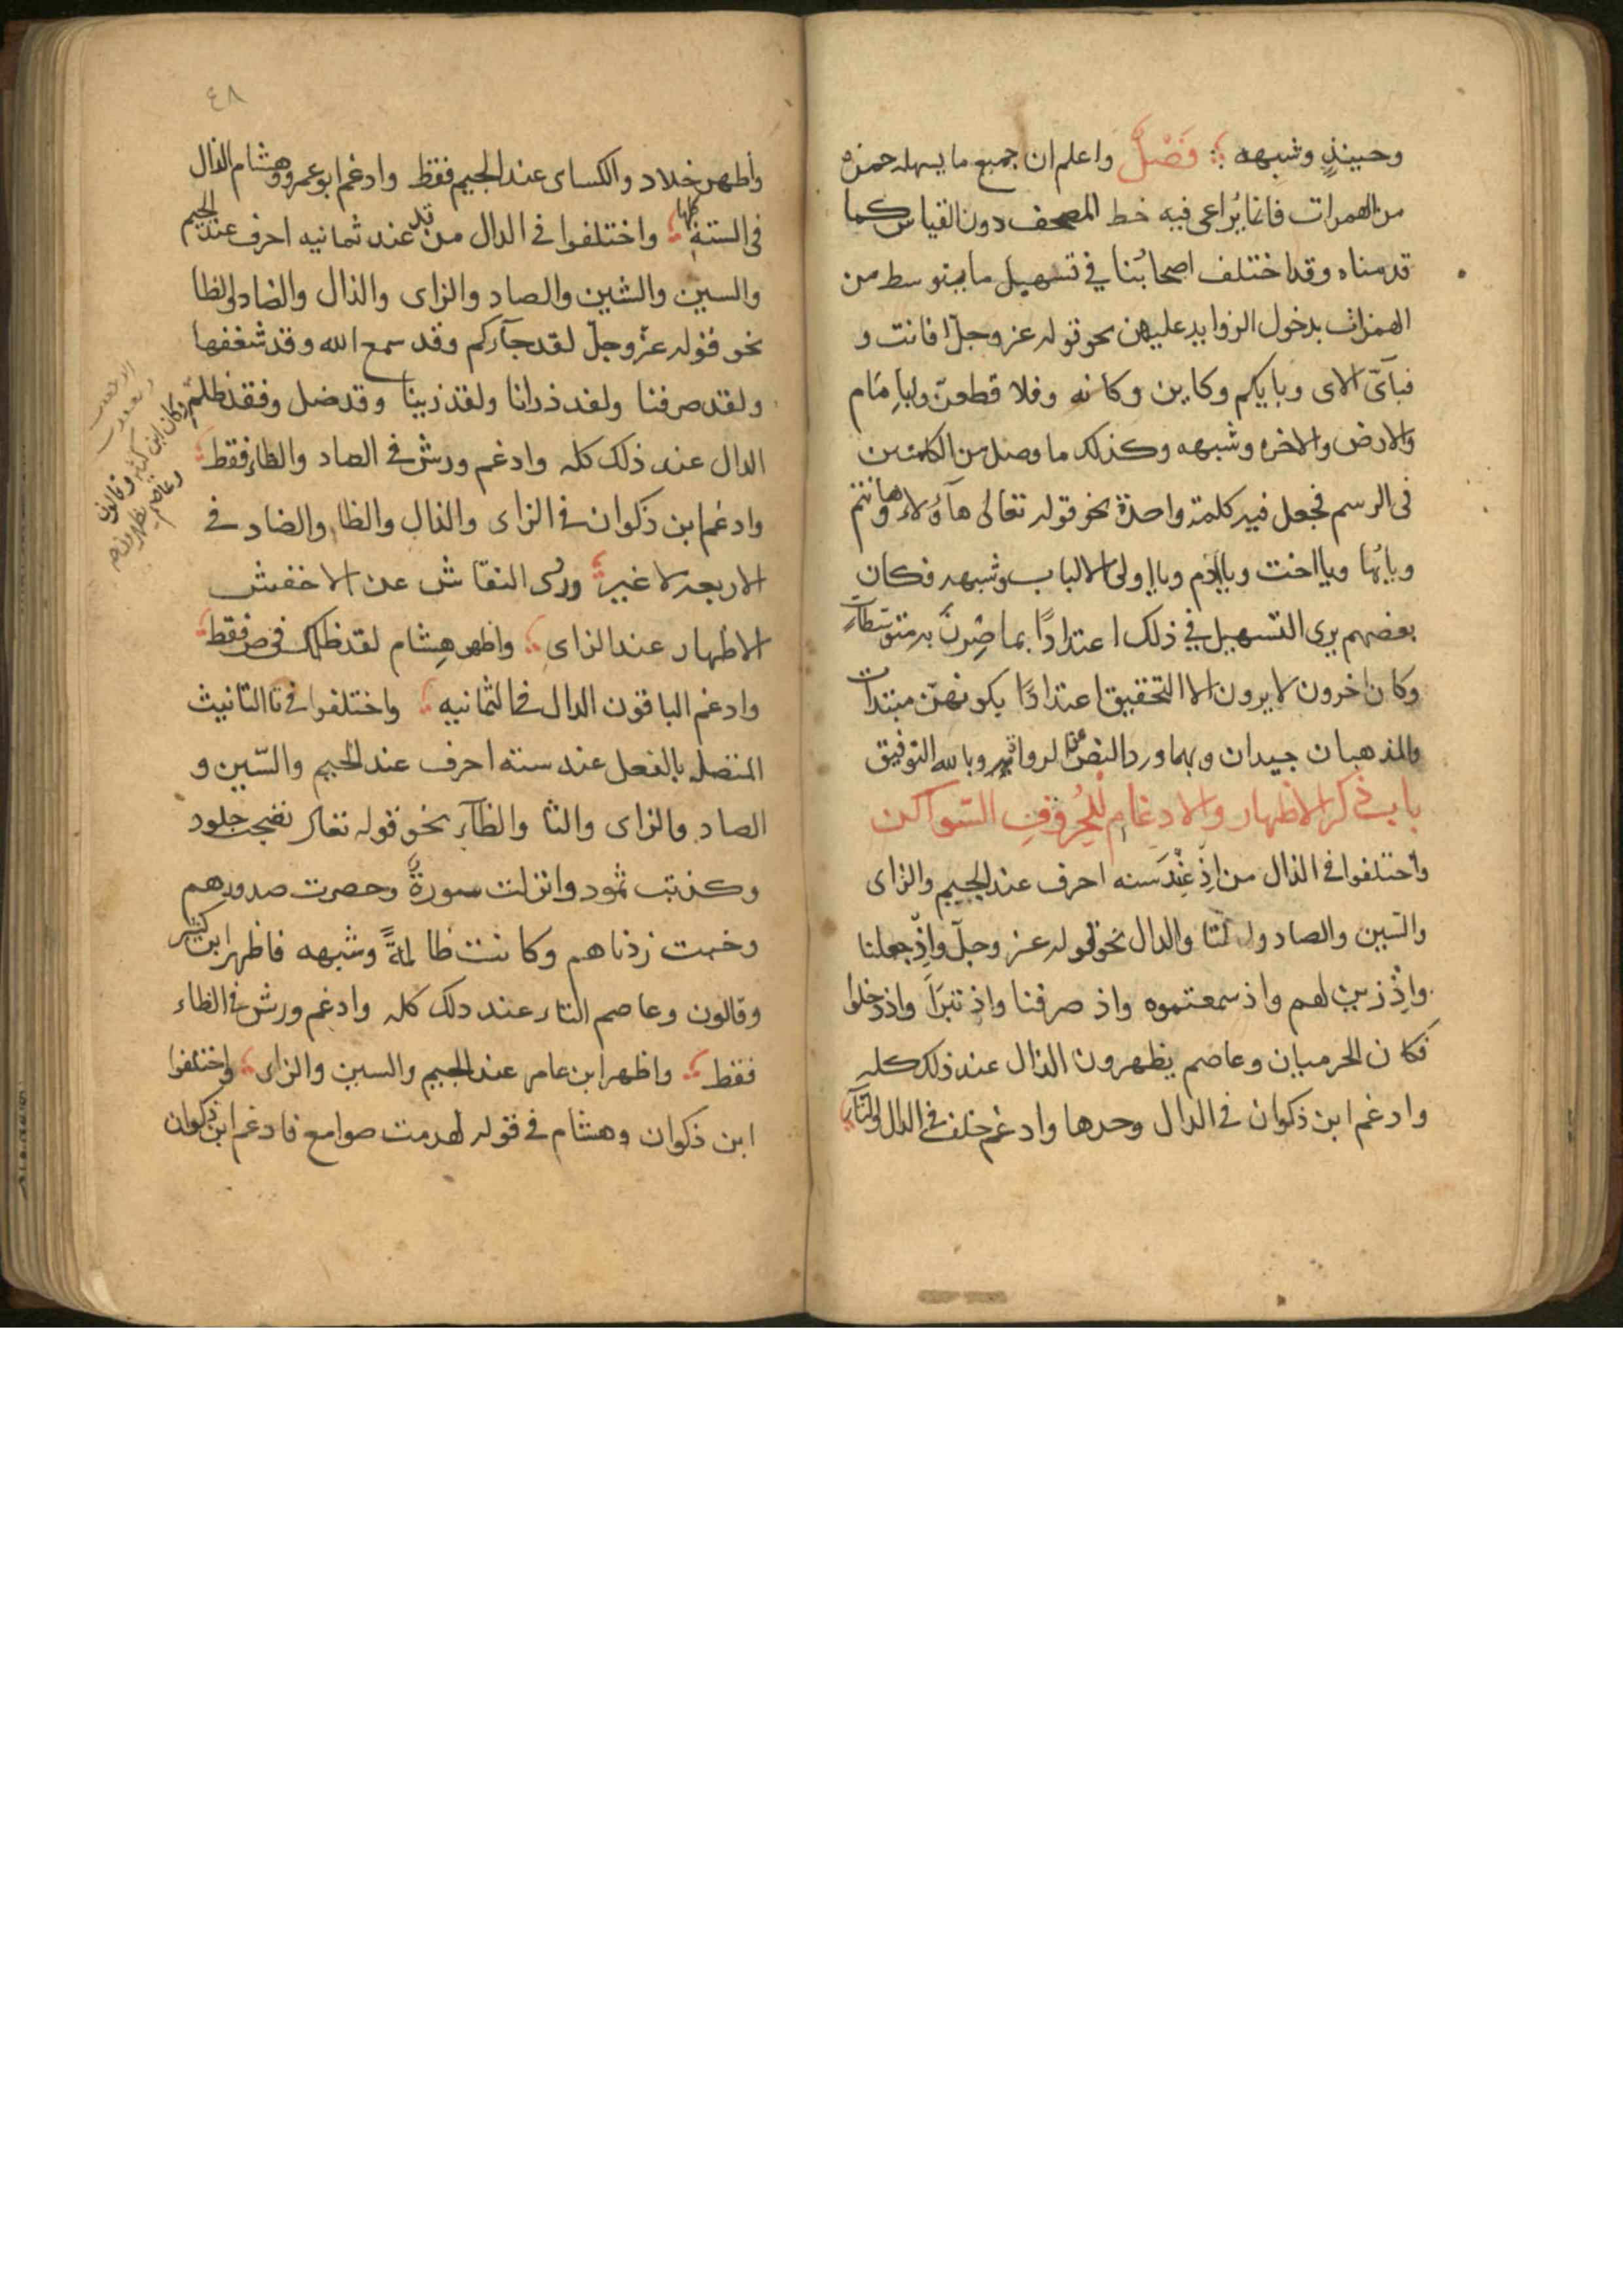 وحينيذٍ وشبهه فَصْلٌ واعلم ان جميع ما يسهله حمزه
من الهمزات فانما يُراعى فيه خط المصحف دون القياس كما
قدمناه وقد اختلف اصحابُنا في تسهيل ما يتوسط من
الهمزات بدخول الزوايد عليهن نحو قوله عز وجلّ افانت و
فبأىّ الاى وبايكم وكاين وكانه وفلا قطعنّ ولبامام
والارض والاخره وشبهه وكذلك ما وصل من الكلمتين
فى الرسم فجعل فيه كلمة واحدة نحو قوله تعالى هآؤلاء وهانتم
ويايها ويااخت وياادم ويااولى الالباب وشبهه فكان
بعضهم يرى التسهيل في ذلك اعتدادًا بما صِرنَ به متوسّطاتٍ
وكان اخرون لا يرون الا التحقيق اعتدادًا بكونهنّ مبتدات
والمذهبان جيدان وبهما ورد النص عن الرواة وبالله التوفيق
باب ذكر الاظهار والادغام للحُروفِ السّواكن
واختلفوا فى الذال من اذْ عِنْدَ سته احرف عند الجيم والزاى
والسّين والصاد والتا والدال نحو قوله عز وجلّ واذْ جعلنا
واذْ زين لهم واذ سمعتموه واذ صرفنا واذ تبرّا واذ دخلوا
فكان الحرميان وعاصم يظهرون الذال عند ذلك كله
وادغم ابن ذكوان في الدال وحدها وادغم خلف في الدال والتآء
٤٨
واظهر خلاد والكساى عند الجيم فقط وادغم ابو عمرو وهشام الذال
فى الستة كلها واختلفوا فى الدال من قد عند ثمانيه احرف عند الجيم
والسين والشين والصاد والزاى والذال والضاد والظا
نحو قوله عزّ وجلّ لقد جآءكم وقد سمع الله وقد شغفها
ولقد صرفنا ولقد ذرانا ولقد زينا وقد ضل وفقد ظلم
وكان ابن كثير وقالون
وعاصم يظهرون
الدال عند ذلك كله وادغم ورش فى الضاد والظاء فقط
وادغم ابن ذكوان فى الزاى والذال والظا والضاد في
الاربعة لا غير وروى النقاش عن الاخفش
الاظهار عند الزاى واظهر هشام لقد ظلمك فى ص فقط
وادغم الباقون الدال فى الثمانيه واختلفوا فى تا التانيث
المتصلة بالفعل عند سته احرف عند الجيم والسّين و
الصاد والزاى والثا والظآء نحو قوله تعالى نضجت جلود
وكذبت ثمود وانزلت سورةٌ وحصرت صدورهم
وخبت زدناهم وكانت ظالمةً وشبهه فاظهر ابن كثير
وقالون وعاصم التاء عند ذلك كله وادغم ورش فى الظاء
فقط واظهر ابن عامر عند الجيم والسين والزاى واختلفوا
ابن ذكوان وهشام فى قوله لهدمت صوامع فادغم ابن ذكوان